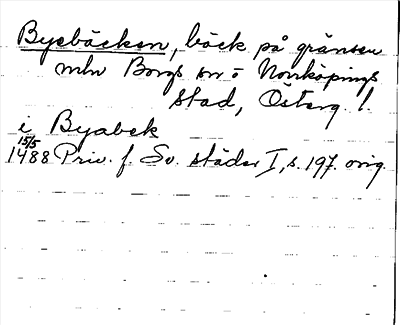 Byebäcken, bäck på gränsen
mln Borgs sn o Norrköpings
stad, Österg. l.
i Byabek
15/5
1488 Priv. f. Sv. städer I, s. 197. orig.